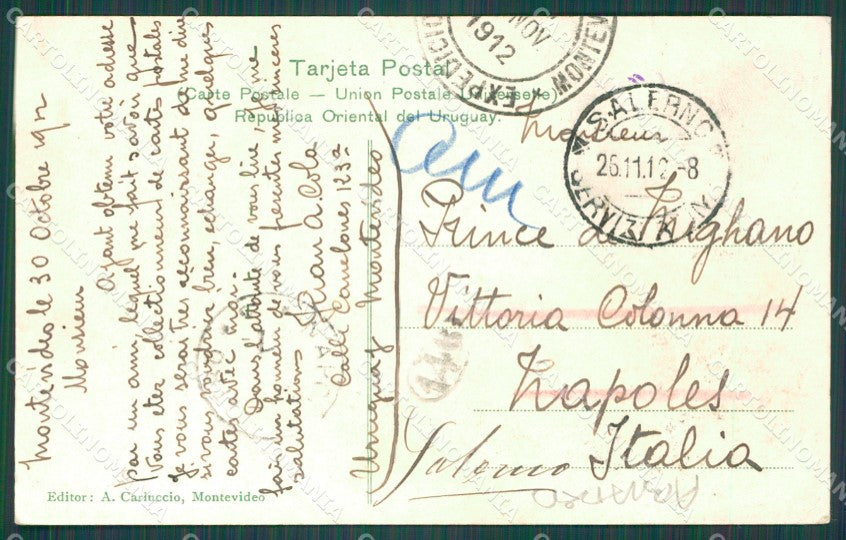 Tarjeta Postal
(Carte Postale — Union Postale Universelle)
República Oriental del Uruguay.
EXPEDICIO
NOV
1912
MONTEV
SALERNO
26.11.12 -8
Monsieur
Prince de
Vittoria Colonna 14
Napoles
Italia
Salerno
Montevideo le 30 Octobre 1912
Monsieur
Ayant obtenu votre adresse
par un ami, lequel me fait savoir que
Vous etez collectionneur de cartes postales
je vous serai tres reconnaissant de me dire
si vous voudriez bien, echanger, quelques
cartes avec moi.
Dans l'attente de vous lire, je me
fais un honneur de vous presenter mes sinceres
salutations
Juan A. Cola
Calle Canelones 123a
Uruguay Montevideo
Editor: A. Carluccio, Montevideo
CARTOLINOMANIA